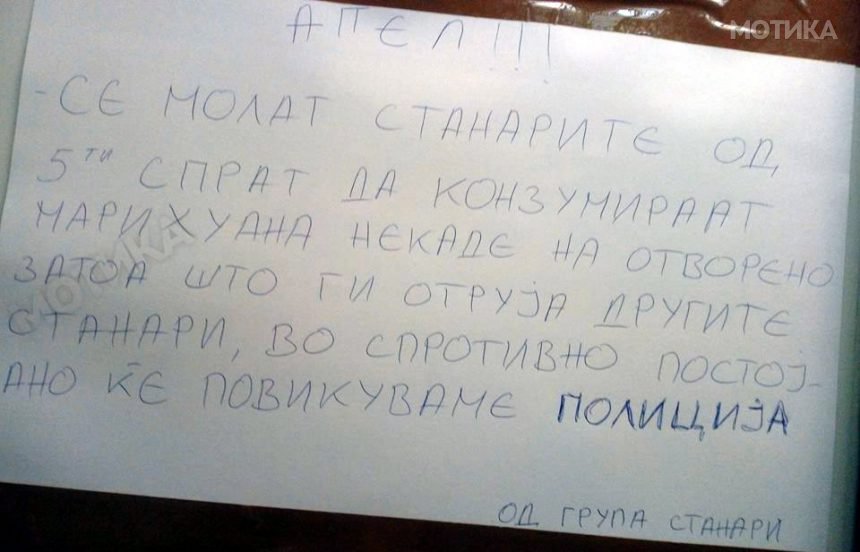 МОТИКА
АПЕЛ!!!
- СЕ МОЛАТ СТАНАРИТЕ ОД
5ТИ СПРАТ ДА КОНЗУМИРААТ
МАРИХУАНА НЕКАДЕ НА ОТВОРЕНО
ЗАТОА ШТО ГИ ОТРУЈА ДРУГИТЕ
СТАНАРИ, ВО СПРОТИВНО ПОСТОЈ-
АНО ЌЕ ПОВИКУВАМЕ ПОЛИЦИЈА
ОД ГРУПА СТАНАРИ
МОТИКА